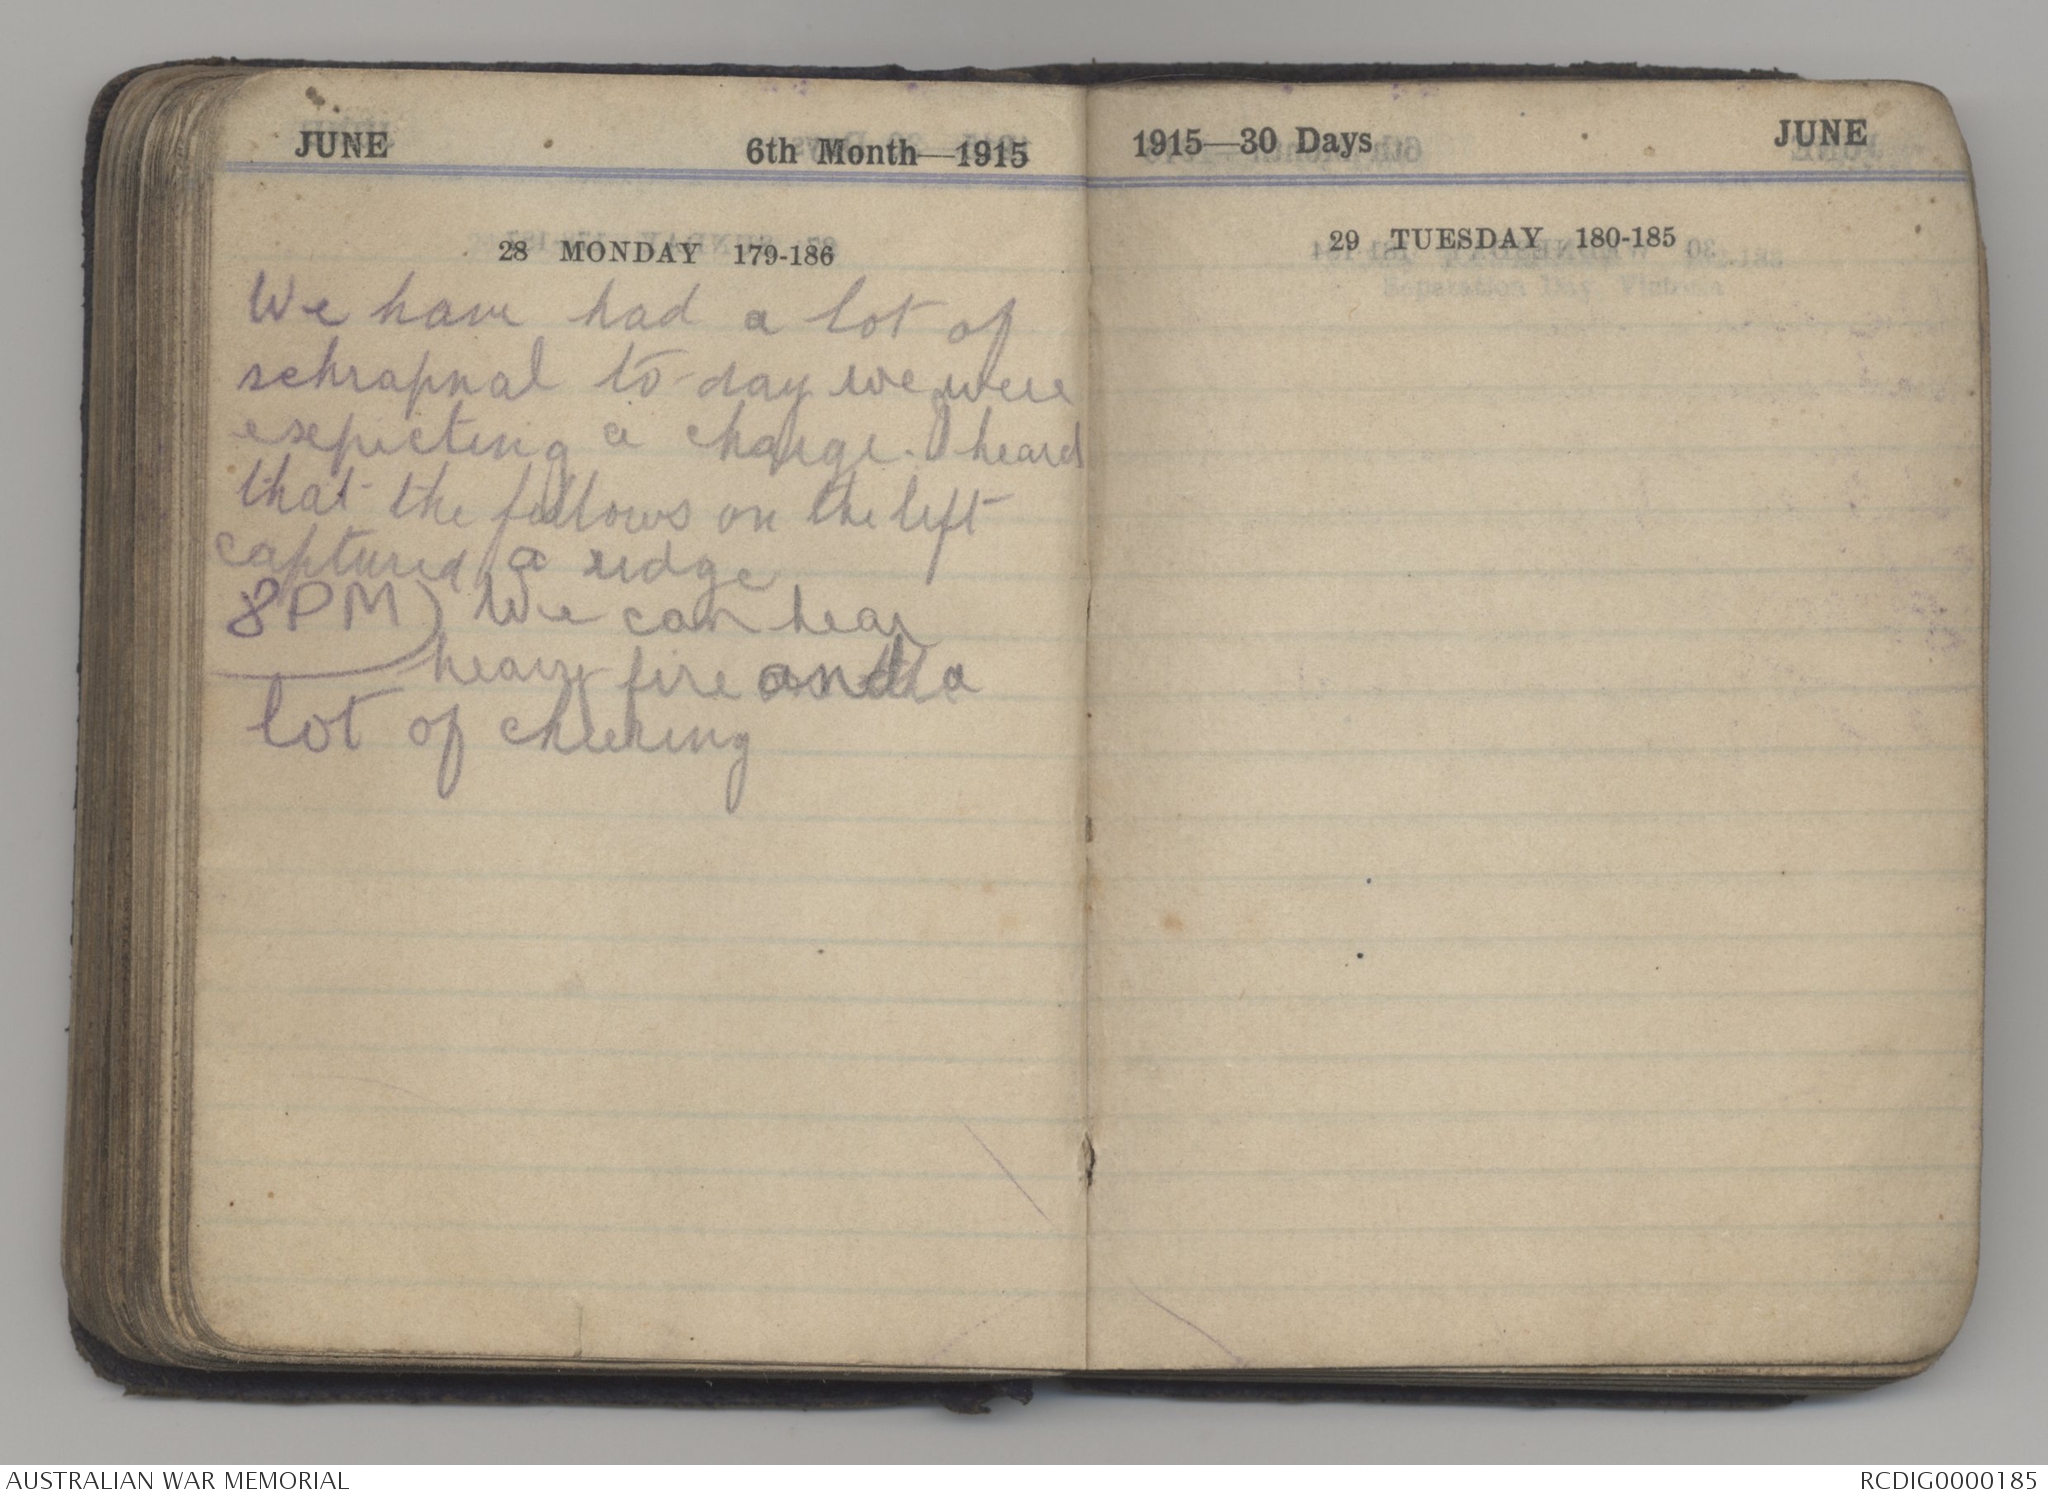 JUNE 6th Month—1915
28 MONDAY 179-186
We have had a lot of
schrapnal to-day we were
exepicting a charge. I heard
that the fellows on the left
captured a ridge
8PM) We can hear
heavy fire and a
lot of cheering
1915—30 Days JUNE
29 TUESDAY 180-185
AUSTRALIAN WAR MEMORIAL
RCDIG0000185